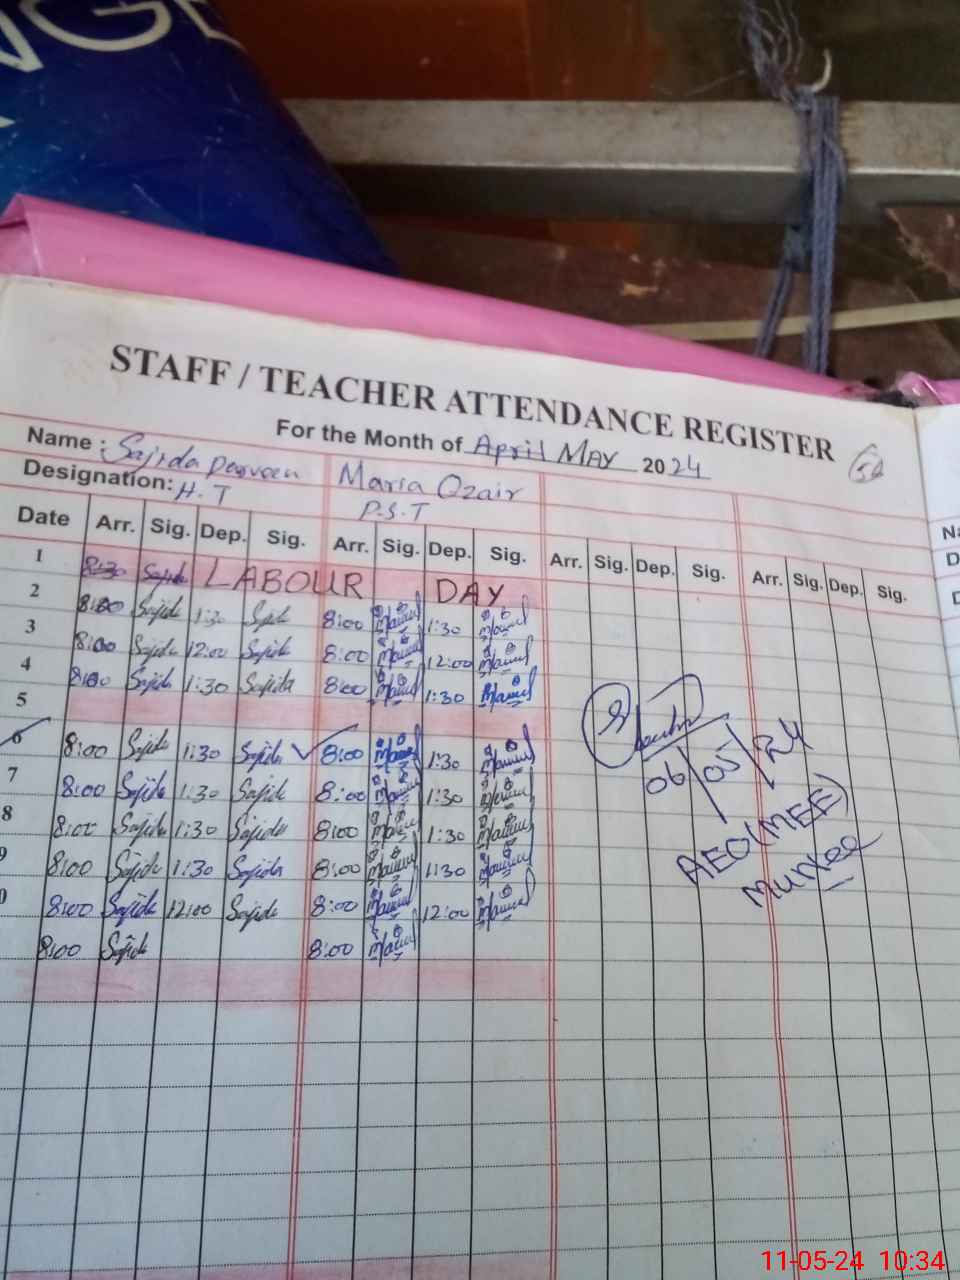 NGE
STAFF / TEACHER ATTENDANCE REGISTER
For the Month of April May 2024
Name : Sajida Parveen Maria Ozair
Designation: H.T P.S.T
Date Arr. Sig. Dep. Sig. Arr. Sig. Dep. Sig. Arr. Sig. Dep. Sig. Arr. Sig. Dep. Sig.
1 8:30 Sajida LABOUR DAY
2 8:00 Sajida 1:30 Sajida 8:00 1:30
3 8:00 Sajida 12:00 Sajida 8:00 12:00
4 8:00 Sajida 1:30 Sajida 8:00 1:30
5
6 8:00 Sajida 1:30 Sajida 8:00 1:30
7 8:00 Sajida 1:30 Sajida 8:00 1:30
8 8:00 Sajida 1:30 Sajida 8:00 1:30
9 8:00 Sajida 1:30 Sajida 8:00 1:30
0 8:00 Sajida 12:00 Sajida 8:00 12:00
8:00 Sajida 8:00
06/05/24
AEO(MEE)
11-05-24 10:34